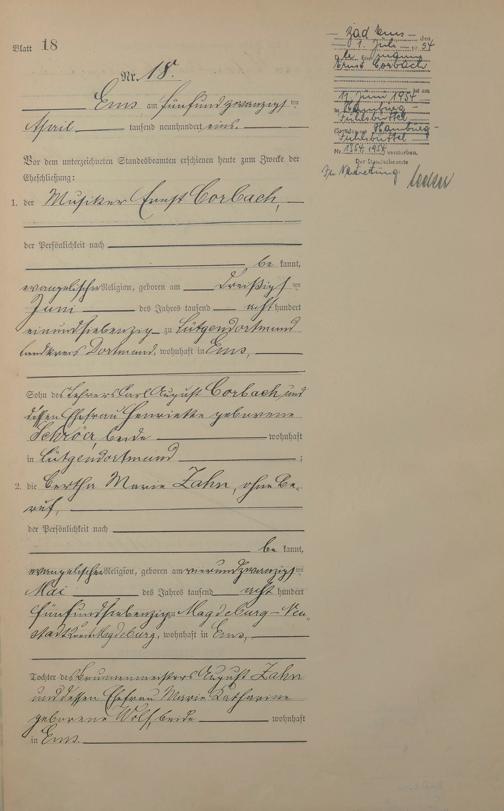 Blatt 18
Nr. 18.
Ems am fünfundzwanzigsten
April tausend neunhundert eins.
Vor dem unterzeichneten Standesbeamten erschienen heute zum Zwecke der
Eheschließung:
1. der Musiker Ernst Corbach,
der Persönlichkeit nach
be kannt,
evangelischer Religion, geboren am Dreißigsten
Juni des Jahres tausend acht hundert
einundsiebenzig zu Lütgendortmund
Landkreis Dortmund, wohnhaft in Ems,
Sohn des Lehrers Carl August Corbach und
dessen Ehefrau Henriette geborene
beide wohnhaft
in Lütgendortmund ;
2. die Bertha Marie Zahn, ohne Be-
ruf,
der Persönlichkeit nach
be kannt,
evangelischer Religion, geboren am vierundzwanzigsten
Mai des Jahres tausend acht hundert
fünfundsiebenzig Magdeburg-Neu-
stadt Magdeburg, wohnhaft in Ems,
Tochter des Brunnenmeisters August Zahn
und dessen Ehefrau Marie Katharine
geborene Wolf, beide wohnhaft
in Ems.
Bad Ems den
1. Juli 54
Ernst Corbach
ist am
11. Juni 1954
Hamburg
Fuhlsbüttel
Hamburg-
Fuhlsbüttel
Nr. 1954 verstorben.
Der Standesbeamte
In Vertretung